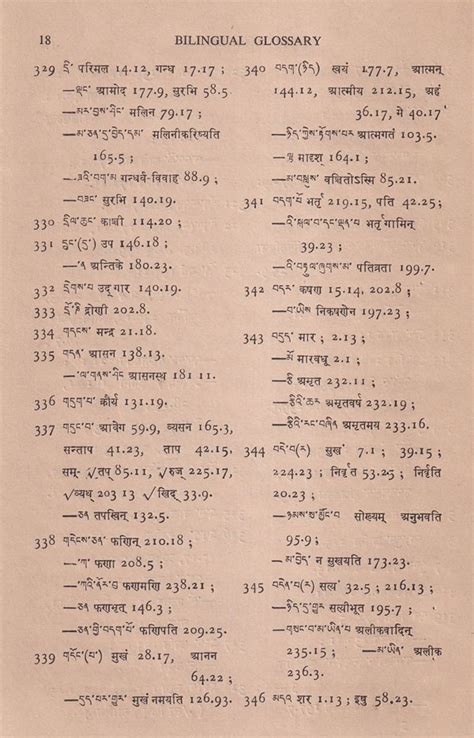 18 BILINGUAL GLOSSARY
329 དྲི་ परिमल 14.12, गन्ध 17.17 ;
—ལྡང་ आमोद 177.9, सुरभि 58.5.
—མར་བྱས་ཤིང་ मलिन 79.17 ;
—མ་ཅན་དུ་བྱེད་དམ་ मलिनीकरिष्यति
165.5 ;
—ཟའི་བག་མ་ गन्धर्व-विवाह 88.9 ;
—བཟང་ सुरभि 140.19.
330 དྲིལ་ཆུང་ काञ्ची 114.20 ;
331 དྲུང་(དུ་) उप 146.18 ;
—་ན་ अन्तिके 180.23.
332 དྲེགས་པ་ उद्गार 140.19.
333 द्रोणी 202.8.
334 གདངས་ मन्द्र 21.18.
335 གདན་ आसन 138.13.
—་ལ་གནས་ཤིང་ आसनस्थ 181 11.
336 གདུག་པ་ क्रौर्य 131.19.
337 གདུང་བ་ आवेग 59.9, व्यसन 165.3,
सन्ताप 41.23, ताप 42.15.
सम्- √तप् 85.11, √रुज् 225.17,
√व्यथ् 203 13 √खिद् 33.9.
—ཅན་ तपस्विन् 132.5.
338 གདེངས་ཅན་ फणिन् 210.18 ;
—་ཀ་ फणा 208.5 ;
—་ཀའི་ནོར་བུ་ फणमणि 238.21 ;
—ཅན་ फणभृत् 146.3 ;
—ཅན་གྱི་བདག་པོ་ फणिपति 209.25.
339 གདོང་(པ་) मुखं 28.17, आनन
64.22 ;
—དུད་པར་གྱུར་ मुखं नमयति 126.93.
340 བདག་(ཉིད་) स्वयं 177.7, आत्मन्
144.12, आत्मीय 212.15, अहं
36.17, मे 40.17
—ཉིད་ཀྱིས་རྟོགས་པར་ आत्मगतं 103.5.
—ལྟ་ मादृश 164.1 ;
—མ་བསླུས་ वञ्चितोऽस्मि 85.21.
341 བདག་པོ་ भर्तृ 219.15, पति 42.25;
—འི་སྐལ་བ་དང་ལྡན་པ་ भर्तृगामिन्
39.23 ;
—འི་བརྟུལ་ཞུགས་མ་ पतिव्रता 199.7.
342 བདར་ कषण 15.14, 202.8 ;
—བ་ཡིས་ निकषणेन 197.23 ;
343 བདུད་ मार ; 2.13 ;
—མོ་ मारवधू 2.1 ;
—རྩི་ अमृत 232.11 ;
—རྩིའི་ཆར་ अमृतवर्ष 232.19 ;
—རྩིའི་རང་བཞིན་ अमृतमय 233.16.
344 བདེ་བ(ར) सुखं 7.1 ; 39.15 ;
224.23 ; निर्वृत 53.25 ; निर्वृति
20.23 ;
—ཉམས་སུ་མྱོང་བ་ सोख्यम् अनुभवति
95.9 ;
—མ་བྱེད་ न सुखयति 173.23.
345 བདེན་པ(ར) सत्यं 32.5 ; 216.13 ;
—ཉིད་དུ་གྱུར་ सत्यीभूत 195.7 ;
—གསང་བ་མ་ཡིན་པ་ अलीकवादिन्
235.11 ; —མ་ཡིན་ अलीक
236.3.
346 མདའ་ शर 1.13 ; इषु 58.23.